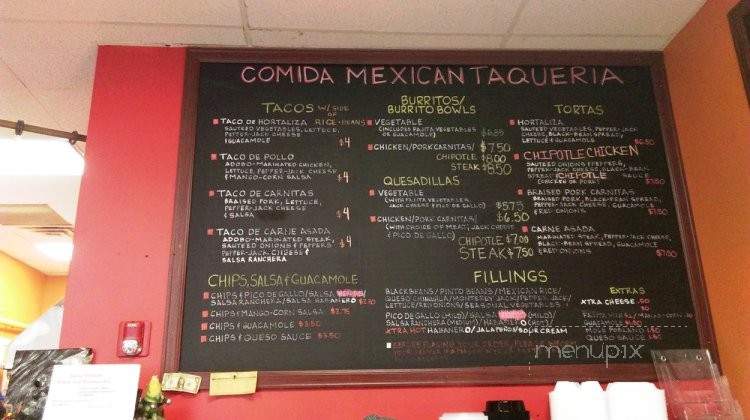 COMIDA MEXICAN TAQUERIA
TACOS W/ SIDE OF RICE+BEANS
TACO DE HORTALIZA
SAUTEED VEGETABLES, LETTUCE,
PEPPER-JACK CHEESE
& GUACAMOLE $4
TACO DE POLLO
ADOBO-MARINATED CHICKEN,
LETTUCE, PEPPER-JACK CHEESE
& MANGO-CORN SALSA $4
TACO DE CARNITAS
BRAISED PORK, LETTUCE,
PEPPER-JACK CHEESE
& SALSA $4
TACO DE CARNE ASADA
ADOBO-MARINATED STEAK,
SAUTEED ONIONS & PEPPERS
PEPPER-JACK CHEESE &
SALSA RANCHERA $4
CHIPS, SALSA & GUACAMOLE
CHIPS & PICO DE GALLO/SALSA
SALSA RANCHERA/SALSA HABANERO
CHIPS & MANGO-CORN SALSA $2.75
CHIPS & GUACAMOLE $3.50
CHIPS & QUESO SAUCE $3.50
BURRITOS/
BURRITO BOWLS
VEGETABLE
(INCLUDES FAJITA VEGETABLES
OR GUACAMOLE)
CHICKEN/PORK CARNITAS/ $7.50
CHIPOTLE $8.00
STEAK $8.50
QUESADILLAS
VEGETABLE
(WITH FAJITA VEGETABLES, $5.75
JACK CHEESE & PICO DE GALLO)
CHICKEN/PORK CARNITAS/ $6.50
(WITH CHOICE OF MEAT, JACK CHEESE
& PICO DE GALLO) CHIPOTLE $7.00
STEAK $7.50
FILLINGS
BLACK BEANS/PINTO BEANS/MEXICAN RICE/
QUESO CHIHUAHUA/MONTEREY JACK/PEPPER JACK/
LETTUCE/RED ONIONS/SEASONAL VEGETABLES
PICO DE GALLO (MILD)/SALSA (MILD)/
SALSA RANCHERA (MEDIUM)/HABANERO (HOT)/
XTRA HOT HABANERO/JALAPENO & SOUR CREAM
TORTAS
HORTALIZA
SAUTEED VEGETABLES, PEPPER-JACK
CHEESE, BLACK-BEAN SPREAD,
LETTUCE & GUACAMOLE $6.50
CHIPOTLE CHICKEN
SAUTEED ONIONS & PEPPERS,
PEPPER-JACK CHEESE, BLACK-BEAN
SPREAD & CHIPOTLE SAUCE
(CHICKEN OR PORK)
BRAISED PORK CARNITAS
BRAISED PORK, BLACK-BEAN SPREAD,
PEPPER-JACK CHEESE, GUACAMOLE
& RED ONIONS
CARNE ASADA
MARINATED STEAK, PEPPER-JACK CHEESE,
BLACK-BEAN SPREAD, GUACAMOLE
& RED ONIONS
EXTRAS
XTRA CHEESE .50
GUACAMOLE
QUESO SAUCE
menupix